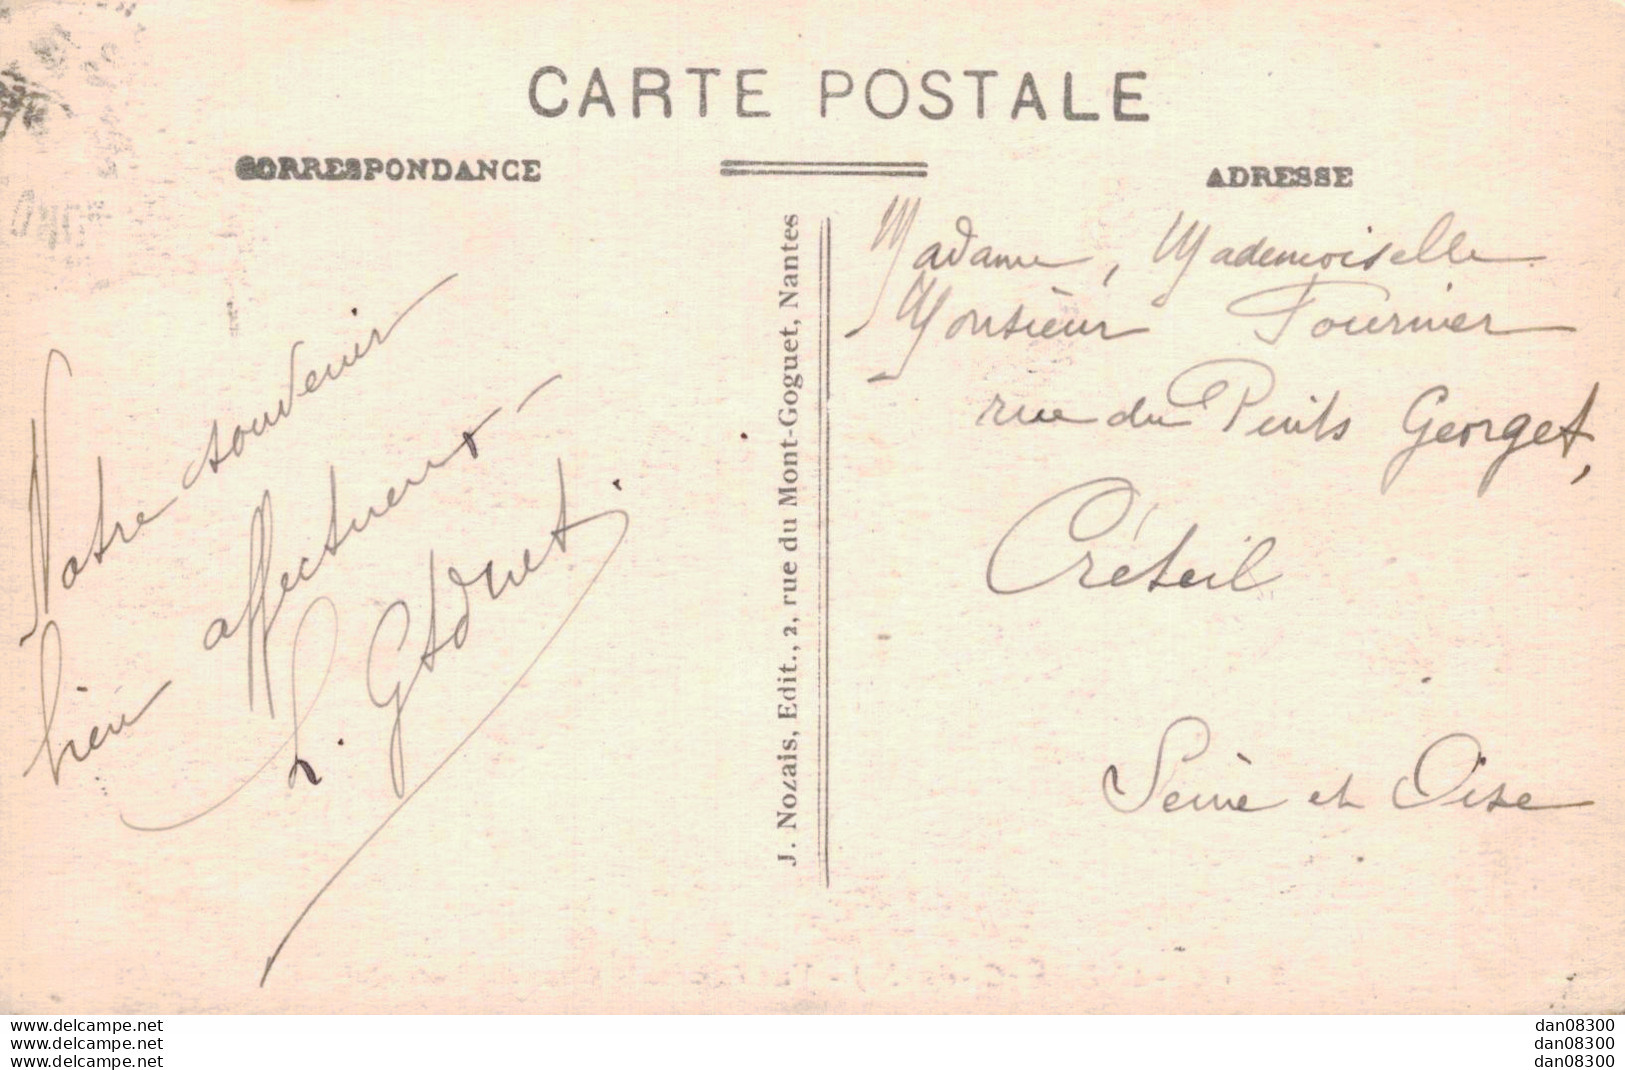 CARTE POSTALE
CORRESPONDANCE
ADRESSE
Notre souvenir
bien affectueux
J. Nozais, Edit., 2, rue du Mont-Goguet, Nantes
Madame, Mademoiselle
Monsieur Fournier
rue du Puits Georget,
Créteil
Seine et Oise
www.delcampe.net
www.delcampe.net
www.delcampe.net
dan08300
dan08300
dan08300